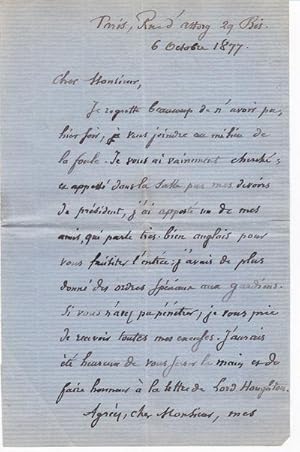 Paris, Rue d'Astorg 29 Bis.
6 Octobre 1877.
Cher Monsieur,
Je regrette beaucoup de n'avoir pu,
hier soir, vous joindre au milieu de
la foule. Je vous ai vainement cherché;
appelé dans la salle par mes devoirs
de président, j'ai aposté un de mes
amis, qui parle très-bien anglais pour
vous faciliter l'entrée; j'avais de plus
donné des ordres spéciaux aux gardiens.
Si vous n'avez pu pénétrer, je vous prie
de recevoir toutes mes excuses. J'aurais
été heureux de vous serrer la main et de
faire honneur à la lettre de Lord Houghton.
Agréez, cher Monsieur, mes